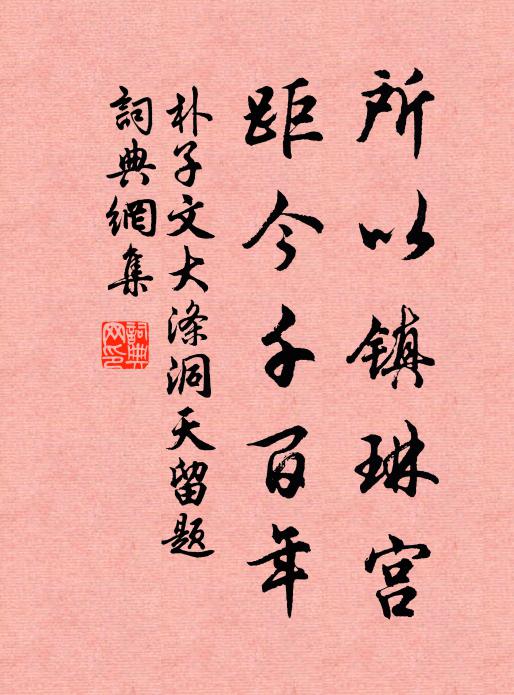 所以镇琳宫
距今千百年
朴子文大涤洞天留题
詞典網集
詞典網印